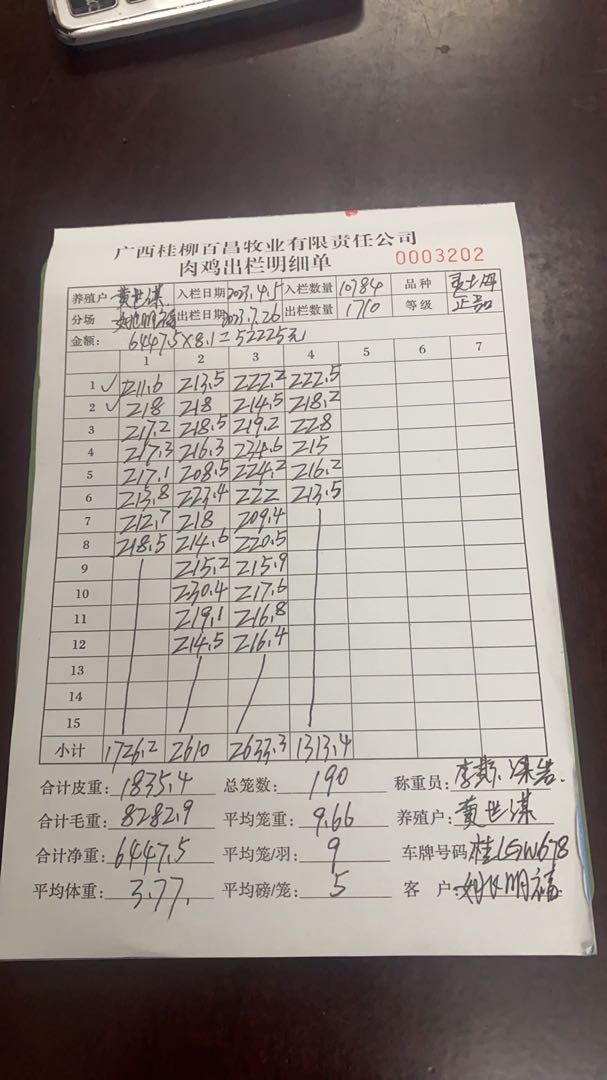 广西桂柳百昌牧业有限责任公司
肉鸡出栏明细单 0003202
养殖户 黄世谋 入栏日期 2023.4.5 入栏数量 10784 品种
分场 出栏日期 2023.7.26 出栏数量 1710 等级 正品
金额: 6447.5×8.1=52225元
1 2 3 4 5 6 7
1 ✓ 211.6 213.5 222.2 222.5
2 ✓ 218 218 214.5 218.2
3 217.2 218.5 219.2 228
4 217.3 216.3 234.6 215
5 217.1 208.5 224.2 216.2
6 213.8 223.4 222 213.5
7 212.7 218 209.4
8 218.5 214.6 220.5
9 215.2 215.9
10 230.4 217.6
11 219.1 216.8
12 214.5 216.4
13
14
15
小计 1726.2 2610 2633.3 1313.4
合计皮重: 1835.4 总笼数: 190 称重员: 李
合计毛重: 8282.9 平均笼重: 9.66 养殖户: 黄世谋
合计净重: 6447.5 平均笼/羽: 9 车牌号码: 桂LSW678
平均体重: 3.77. 平均磅/笼: 5 客户: 明福